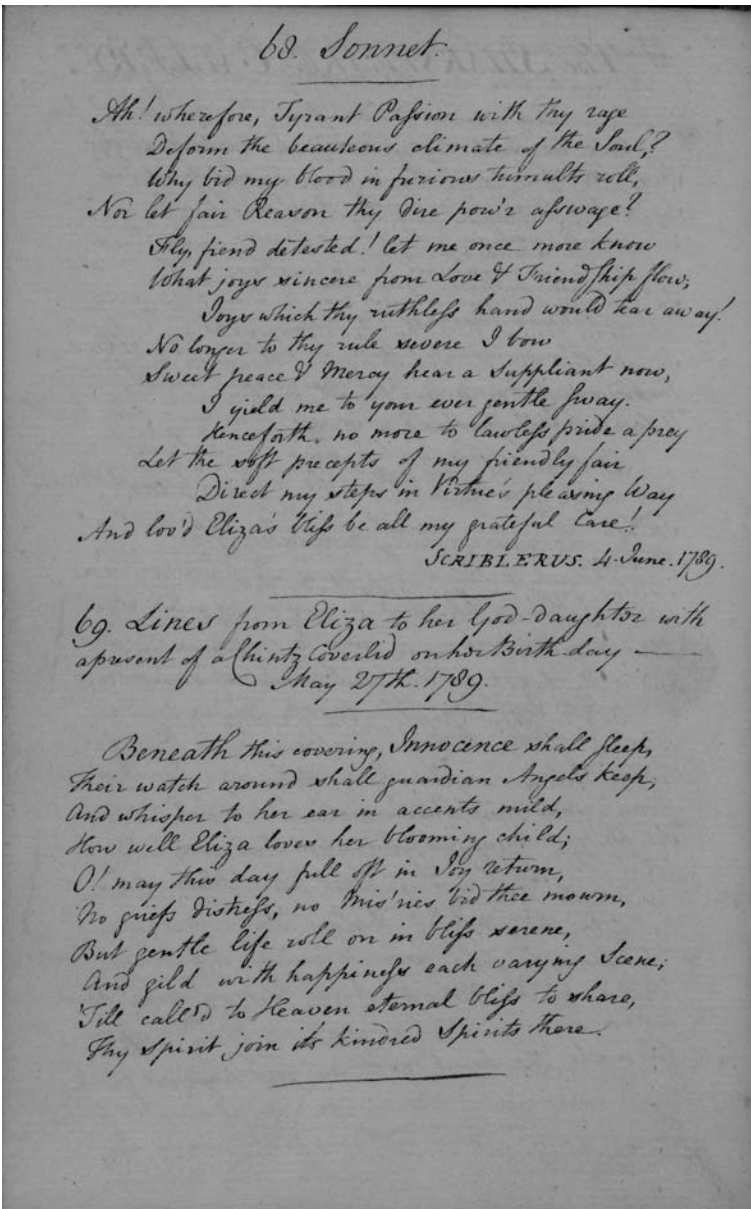 68. Sonnet.
Ah! wherefore, Tyrant Paſsion with thy rage
Deform the beauteous climate of the Soul,?
Why bid my blood in furious tumults roll,
Nor let fair Reason thy dire pow'r aſswage?
Fly, fiend detested! let me once more know
What joys sincere from Love & Friendſhip flow,
Joys which thy ruthleſs hand would tear away!
No longer to thy rule severe I bow
Sweet peace & Mercy hear a Suppliant now,
I yield me to your ever gentle ſway.
Henceforth, no more to lawleſs pride a prey
Let the soft precepts of my friendly fair
Direct my steps in Virtue's pleasing Way
And lov'd Eliza's bliſs be all my grateful Care!
SCRIBLERUS. 4 June. 1789.
69. Lines from Eliza to her God-Daughter with
a present of a Chintz Coverlid on her Birth-day —
May 27th. 1789.
Beneath this covering, Innocence shall ſleep,
Their watch around shall guardian Angels keep,
And whisper to her ear in accents mild,
How well Eliza loves her blooming child;
O! may this day full oft in Joy return,
No griefs distreſs, no Mis'ries bid thee mourn,
But gentle life roll on in bliſs serene,
And gild with happineſs each varying Scene;
'Till call'd to Heaven eternal bliſs to share,
Thy Spirit join it's kindred Spirits there.